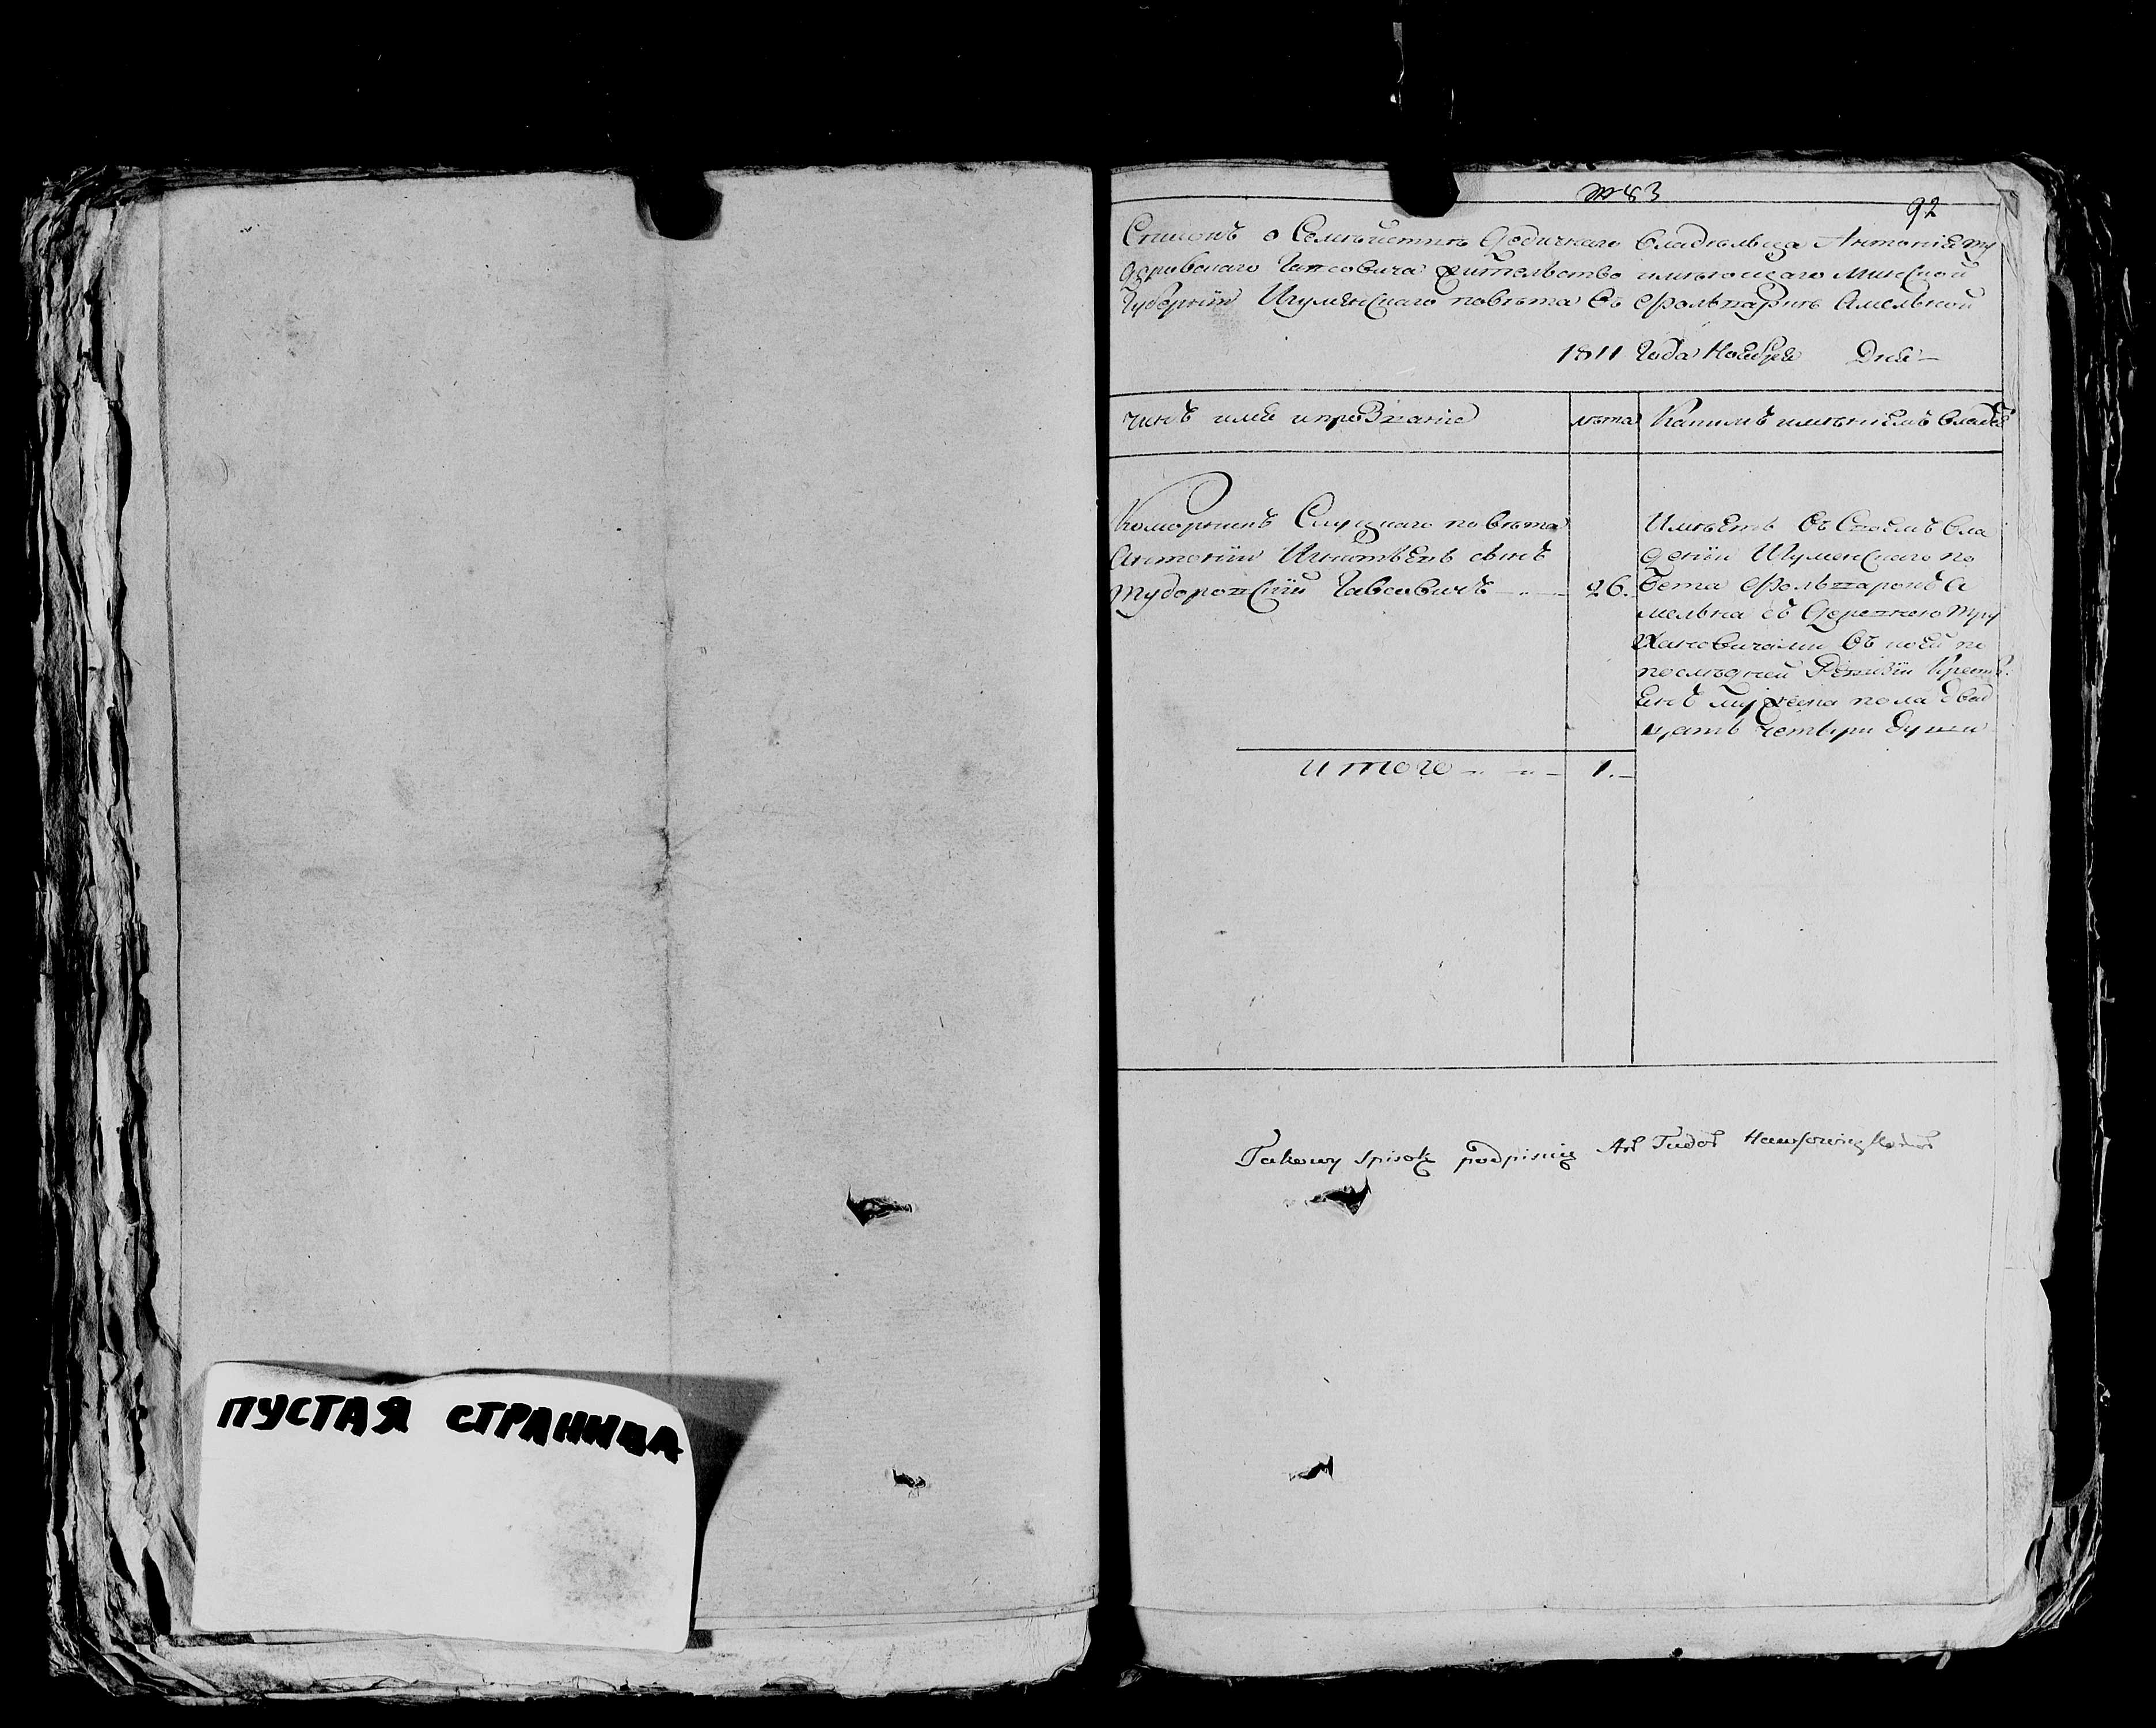 ПУСТАЯ СТРАНИЦА
№ 83
92
Списокъ о Семействѣ Дедичнаго Владѣльца Антонія Ту
доровскаго Гавсовича жительство имѣющаго Минской
Губерніи Игуменскаго повѣта въ Фольваркѣ Амельной
1811 Года Ноября Дня
Чинъ имя и прозваніе
лѣта
Какимъ имѣніемъ владѣ
Коморникъ Слуцкаго повѣта
Антоній Игнатьевъ сынъ
Тудоровскій Гавсовичъ
26.
Имѣетъ въ Своемъ вла
деніи Игуменскаго по
вета Фольварокъ А
мельна съ Деревнею Тру
хановичами въ коей по
последней Ревизіи Крестъ
янъ мужеска пола двад
цать четыри души
итого
1.
Takowy spisok podpisuię Ant Tudor Hawsowicz